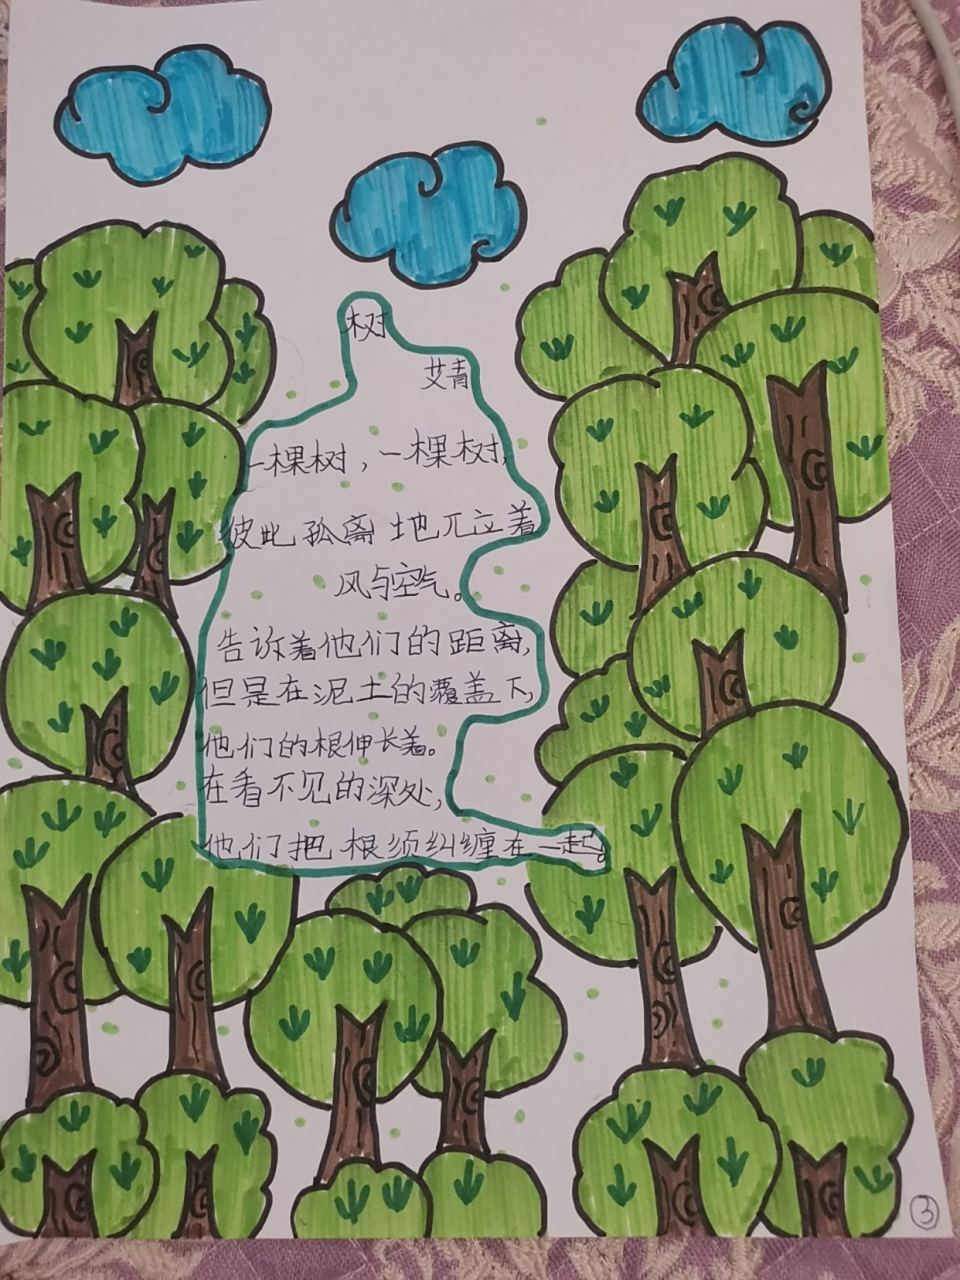 树
艾青
一棵树，一棵树，
彼此孤离地兀立着
风与空气。
告诉着他们的距离，
但是在泥土的覆盖下，
他们的根伸长着。
在看不见的深处，
他们把根须纠缠在一起。
③